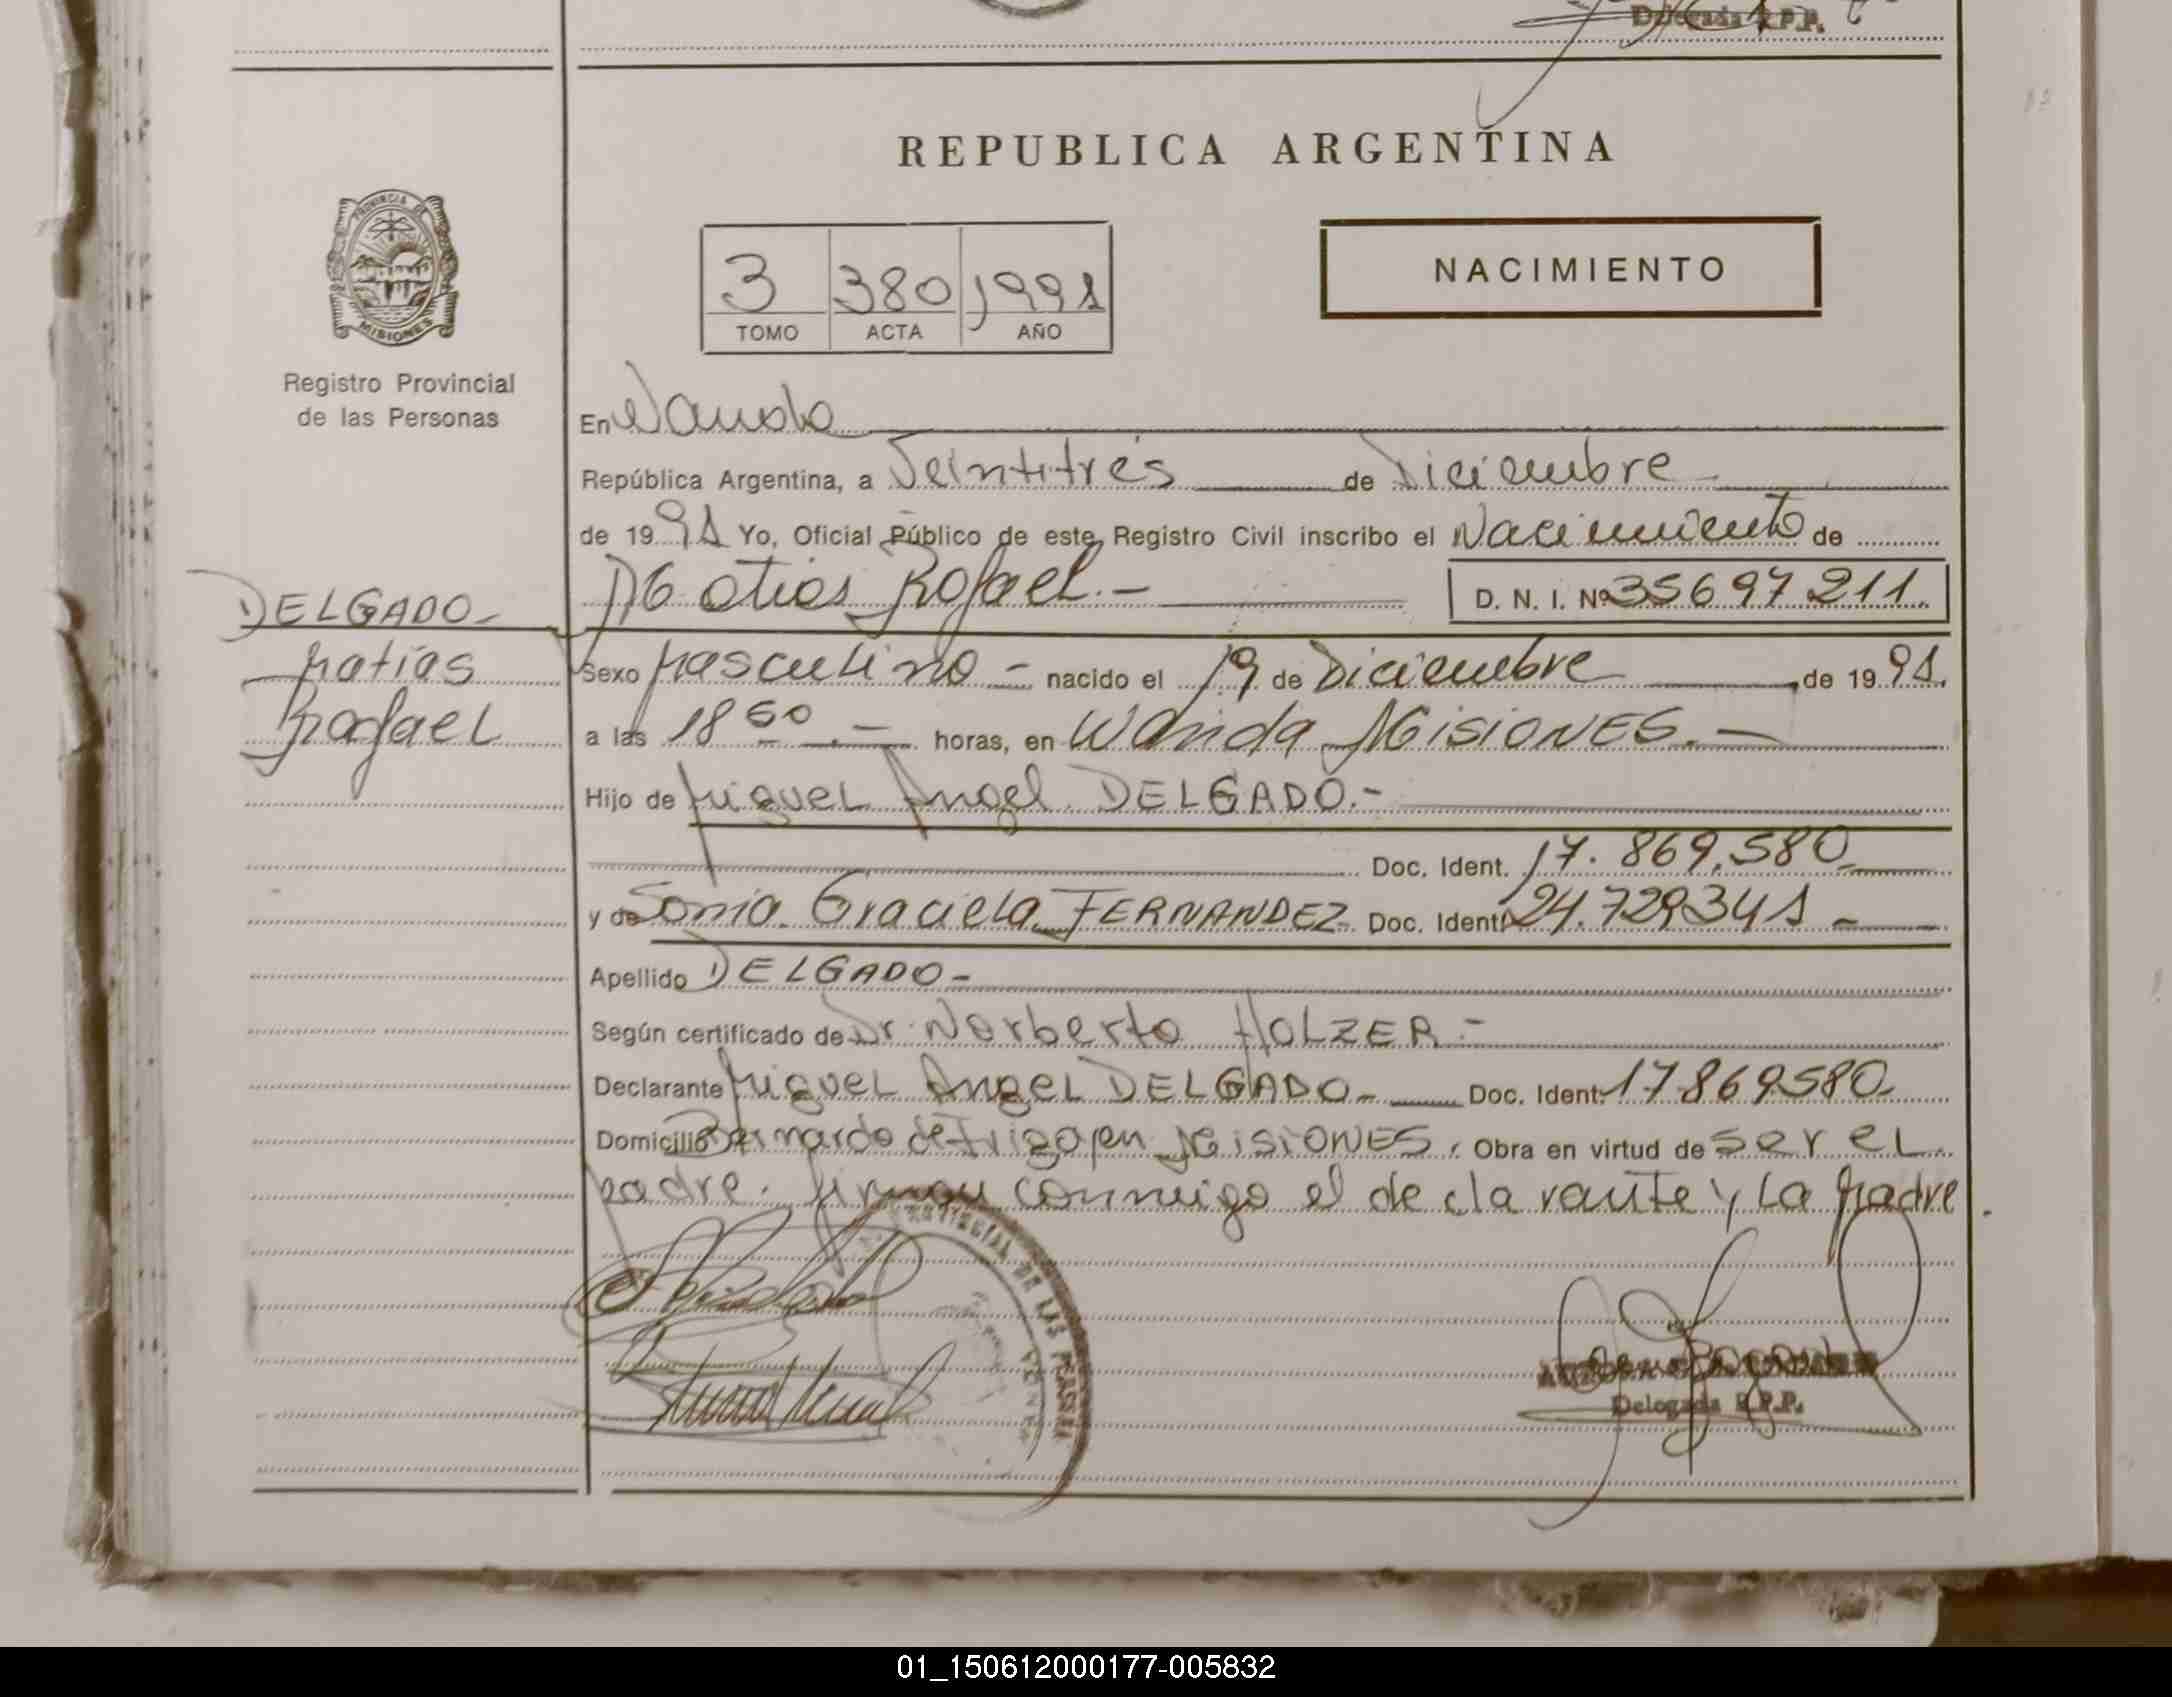 Delegada R.P.P.
REPUBLICA ARGENTINA
PROVINCIA DE
MISIONES
Registro Provincial
de las Personas
3 380 1991
TOMO ACTA AÑO
NACIMIENTO
En Wanda
República Argentina, a Veintitrés de Diciembre
de 1991 Yo, Oficial Público de este Registro Civil inscribo el Nacimiento de
Matias Rafael.- D. N. I. Nº 35697211.
DELGADO-
Matías
Rafael
Sexo Masculino - nacido el 19 de Diciembre de 1991.
a las 18 horas, en Wanda MISIONES.-
Hijo de Miguel Angel DELGADO.-
Doc. Ident. 17.869.580
y de Sonia Graciela FERNANDEZ Doc. Ident. 24.729341-
Apellido DELGADO-
Según certificado de Dr. Norberto HOLZER-
Declarante Miguel Angel DELGADO- Doc. Ident. 17869580
Domicilio Bernardo de Irigoyen MISIONES. Obra en virtud de ser el
padre. firman conmigo el declarante y La Madre.
DE LAS PERSO
Delegada R.P.P.
01_150612000177-005832